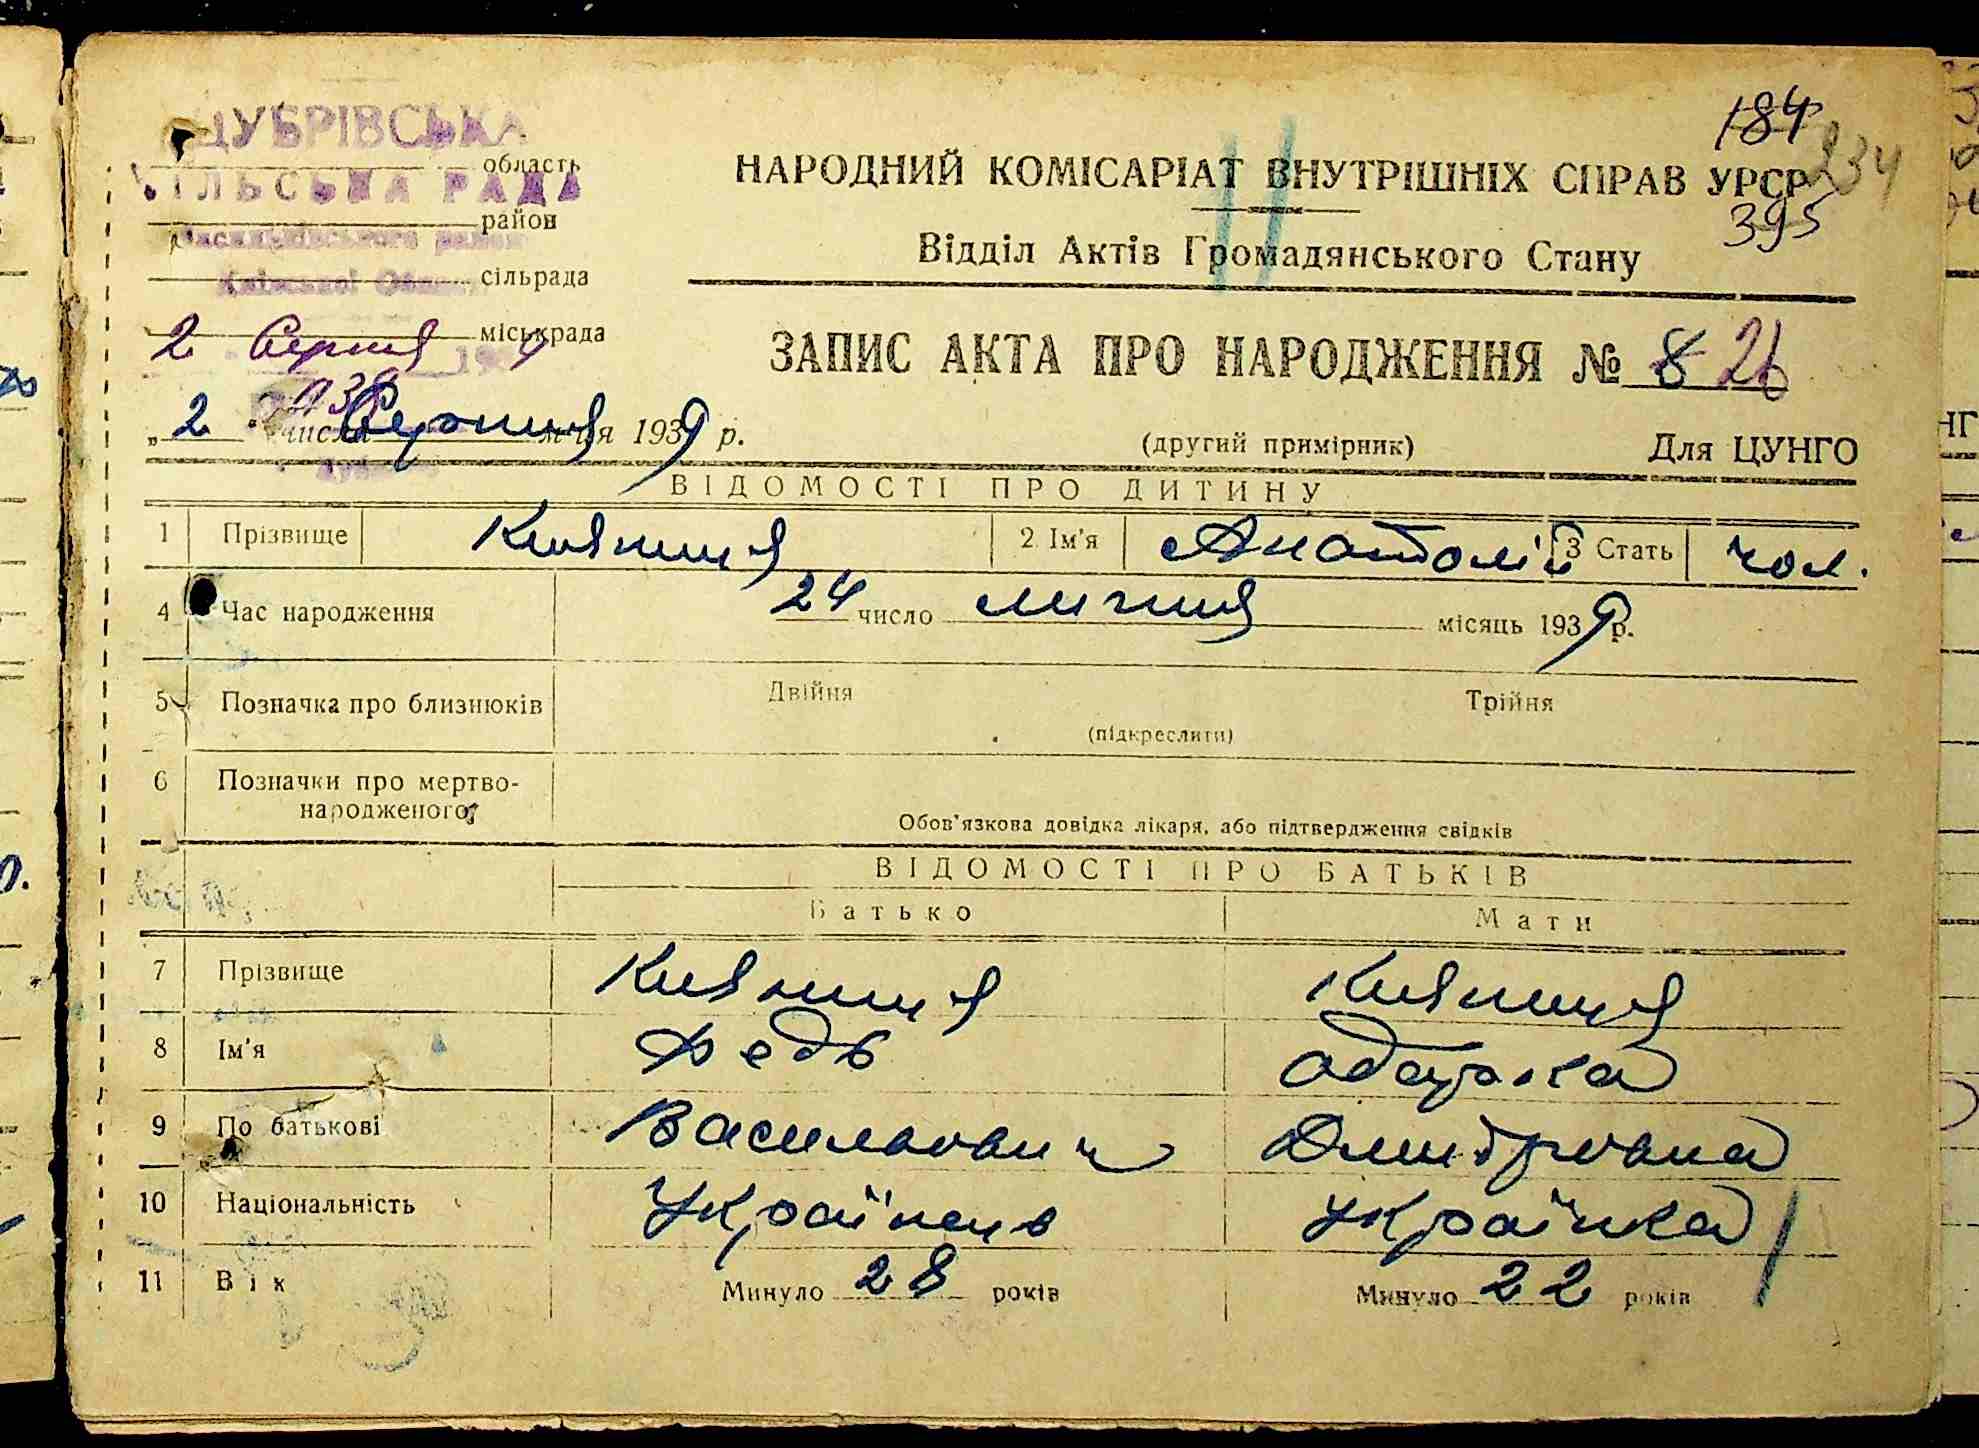 ДУБРІВСЬКА
область
СІЛЬСЬКА РАДА
район
Васильківського району
сільрада
Київської Области
міськрада
2 Серпня 1939
184
234
395
НАРОДНИЙ КОМІСАРІАТ ВНУТРІШНІХ СПРАВ УРСР
Відділ Актів Громадянського Стану
ЗАПИС АКТА ПРО НАРОДЖЕННЯ № 8 26
„2 числа Серпня м-ця 1939 р.
(другий примірник) Для ЦУНГО
ВІДОМОСТІ ПРО ДИТИНУ
1 Прізвище Кияниця 2. Ім'я Анатолій 3 Стать чол.
4 Час народження 24 число липня місяць 1939 р.
5 Позначка про близнюків Двійня Трійня
(підкреслити)
6 Позначки про мертво-
народженого
Обов'язкова довідка лікаря, або підтвердження свідків
ВІДОМОСТІ ПРО БАТЬКІВ
Батько Мати
7 Прізвище Кияниця Кияниця
8 Ім'я Федь Одарка
9 По батькові Васильович Дмитровна
10 Національність Українець Українка
11 Вік Минуло 28 років Минуло 22 років